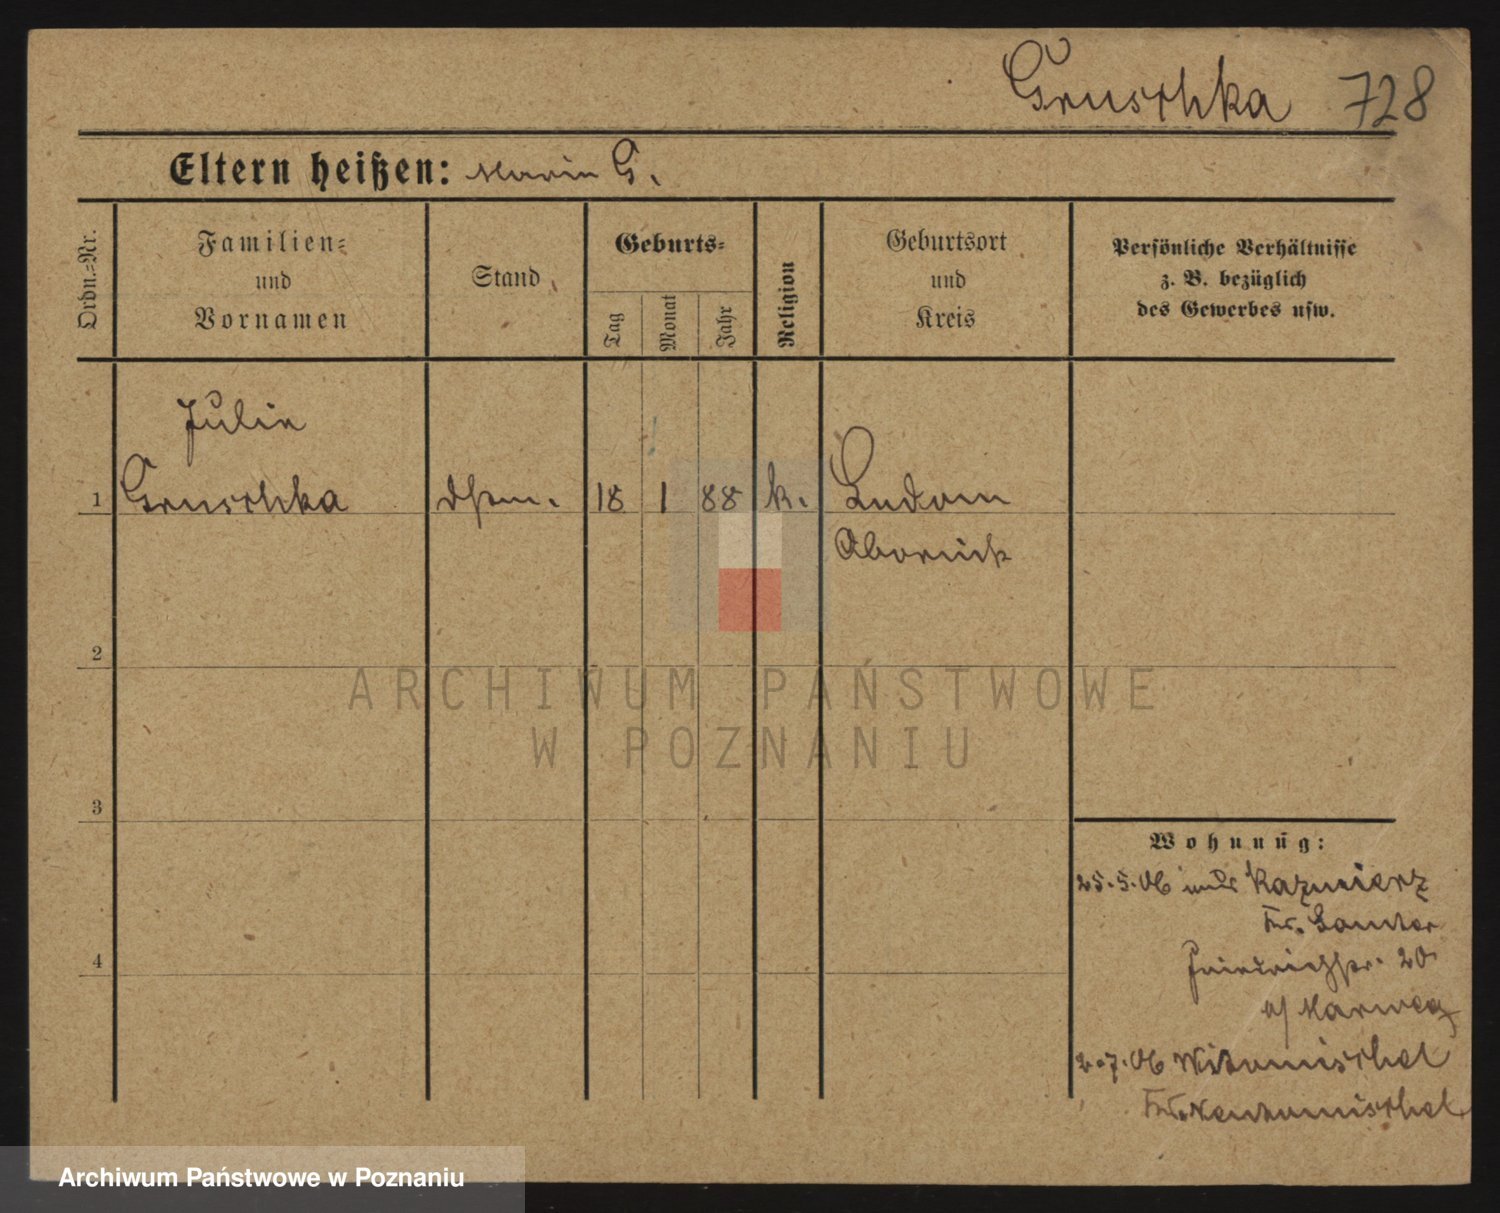 Gruschka 728
Eltern heißen: Marie G.
Ordn.=Nr.
Familien=
und
Vornamen
Stand
Geburts=
Tag
Monat
Jahr
Religion
Geburtsort
und
Kreis
Persönliche Verhältnisse
z. B. bezüglich
des Gewerbes usw.
Julie
1 Gruschka 18 1 88 k. Ludom
Obornick
2
3
4
Wohnung:
25.5.06 Kazmierz
Kr. Samter
Friedrichstr. 20
b/
2.7.06 Witomischel
Kr. Neutomischel
ARCHIWUM PAŃSTWOWE
W POZNANIU
Archiwum Państwowe w Poznaniu